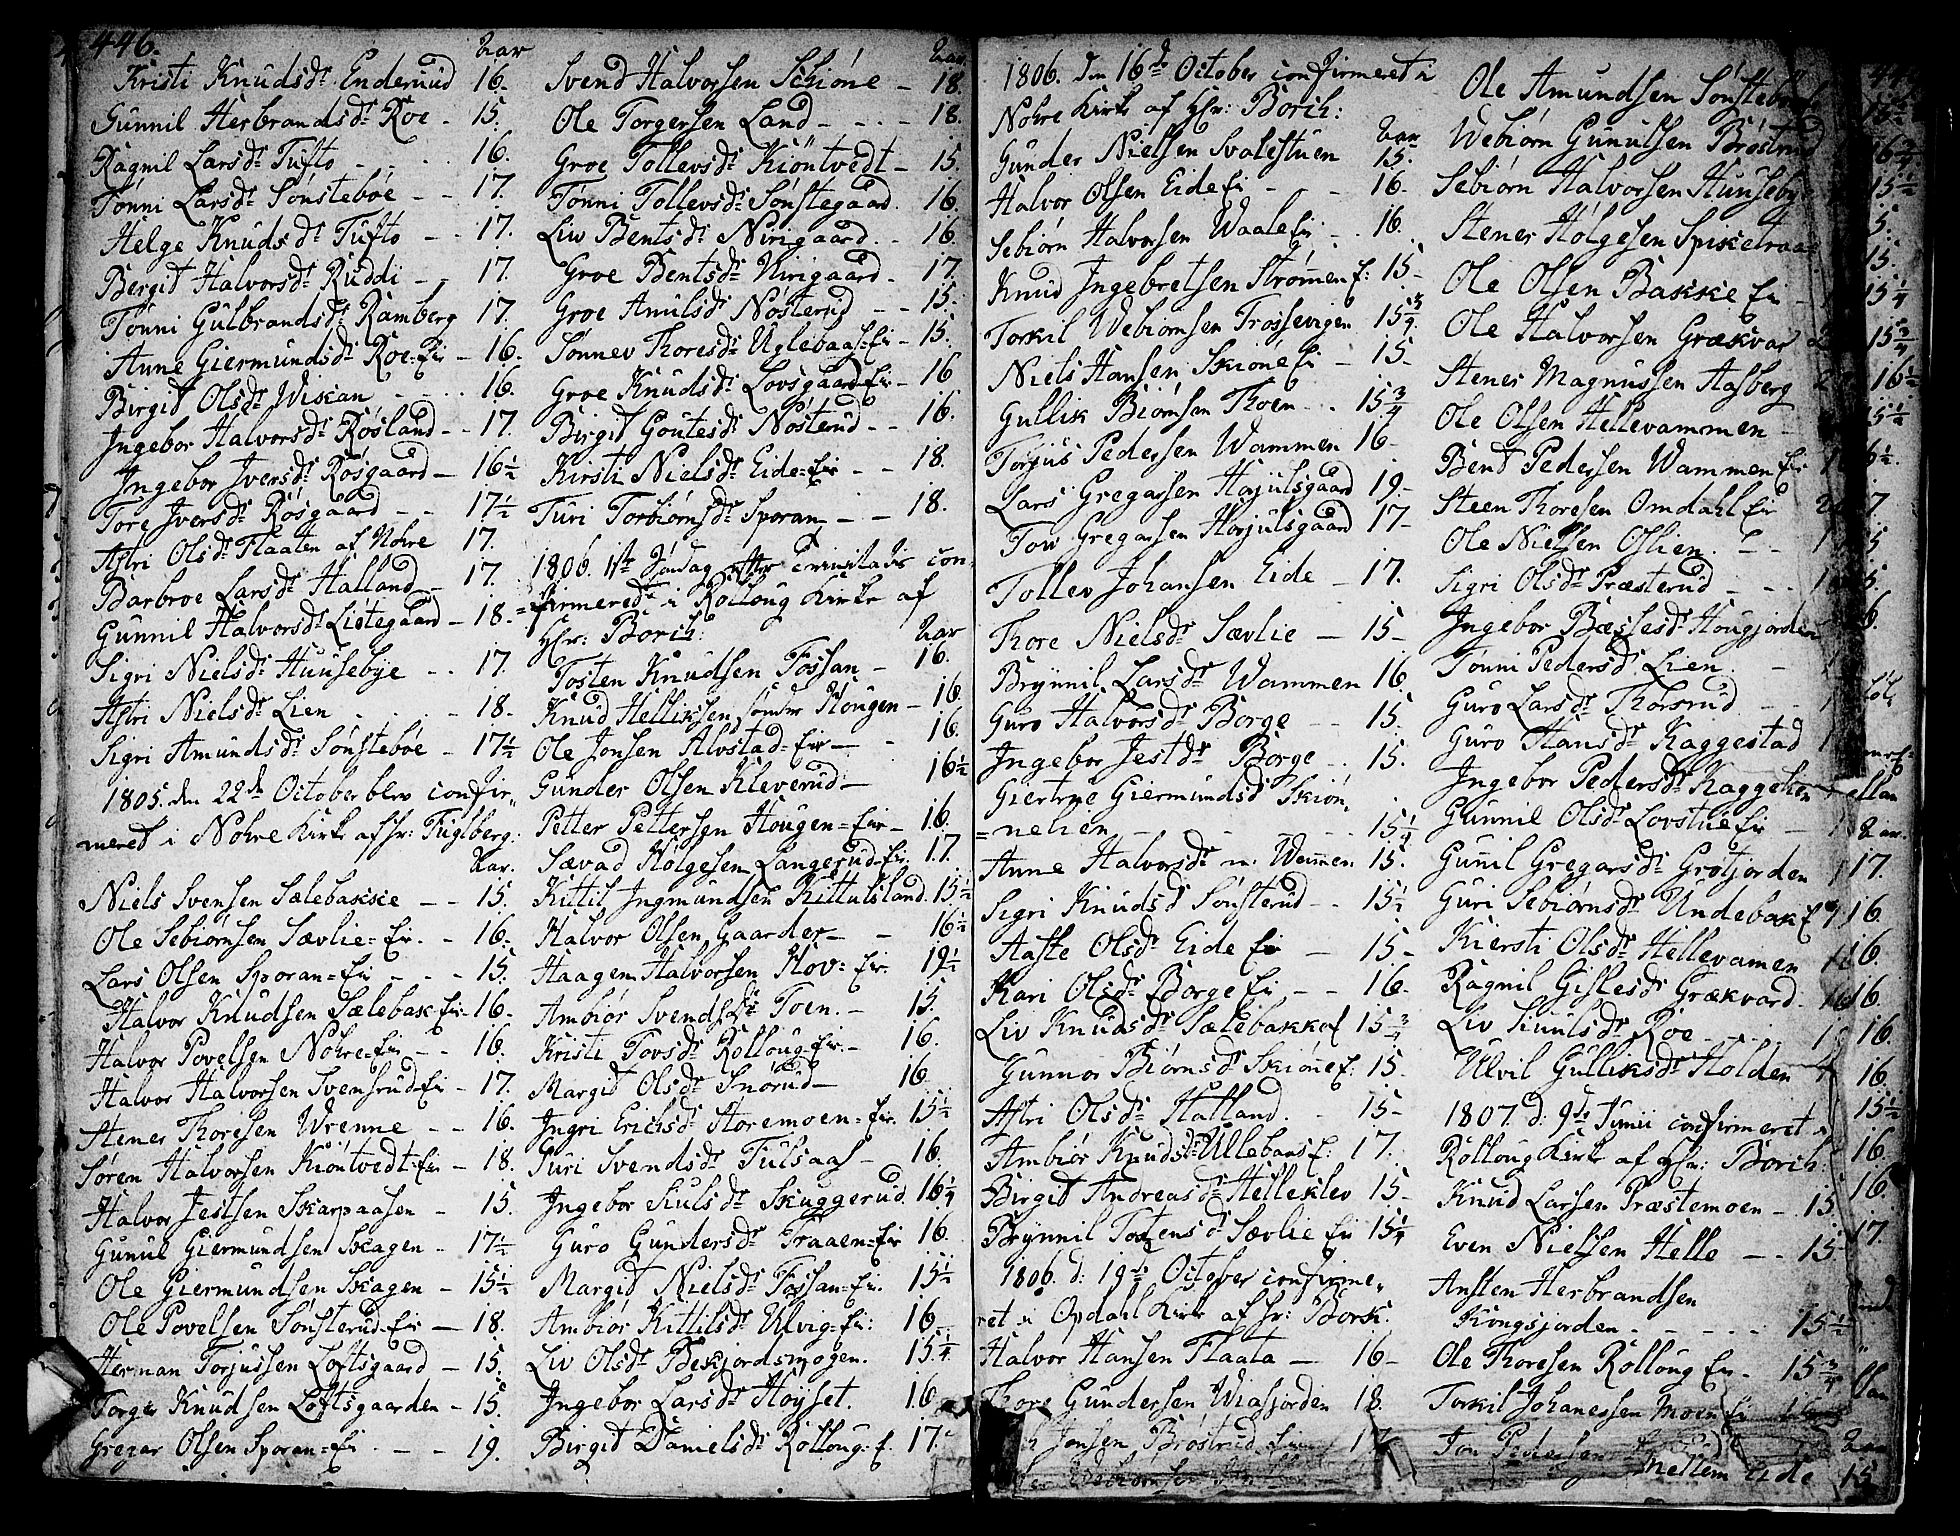 446.
Aar
Kristi Knudsdr Enderud 16.
Gunnil Herbrandsdr Roe - 15.
Ragnil Larsdr Tufto - - - 16.
Tønni Larsdr Sønstebøe - - 17.
Helge Knudsdr Tufto - - 17.
Bergit Halvorsdr Ruddi - - 17.
Tønni Gulbrandsdr Ramberg 17.
Anne Giermundsdr Roe-Eir - 16.
Birgit Olsdr Wikan - - - 16.
Ingebor Halvorsdr Røsland - - 17.
Ingebor Iversdr Røsgaard - 16½
Tore Iversdr Røsgaard - - 17½
Astri Olsdr Flaaten af Nohre 17.
Barbroe Larsdr Halland - 17.
Gunnil Halvorsdr Listegaard - 18-
Sigri Nielsdr Huusebye - - 17.
Astri Nielsdr Lien - - - 18.
Sigri Amundsdr Sønstebøe - 17½
1805. den 22de October blev confir-
meret i Nohre Kirke af hr: Fuglberg:
Aar.
Niels Svensen Sælebakke - - 15.
Ole Sebiørnsen Sævlie=Eir. - 16.
Lars Olsen Sporan=Eir - - - 15.
Halvor Knudsen Sælebak-Eir- 16-
Halvor Povelsen Nohre-Eir - - 16.
Halvor Halvorsen Svensrud-Eir - 17.
Stener Thoresen Wrenne - - 16.
Søren Halvorsen Kiøntvedt-Eir - 18.
Halvor Jestsen Skarpaasen - 15.
Gunul Giermundsen Skagen - 17½
Ole Giermundsen Skagen - 15½
Ole Povelsen Sønsterud-Eir - 18.
Herman Torjussen Loftsgaard - 15.
Torger Knudsen Loftsgaarden - 15.
Gregar Olsen Sporan=Eir. - - 19.
Aar.
Svend Halvorsen Schiøne - 18.
Ole Torgersen Land - - - - 18.
Groe Tollevsdr Kiøntvedt - 15.
Tønni Tollevsdr Sønstegaard. 16
Liv Bentsdr Nirigaard. - - 16.
Groe Bentsdr Nirigaard - 17.
Groe Amulsdr Nøsterud - - 15.
Sønnev Thoresdr Uglebaas=Eir - 15.
Groe Knudsdr Lovsgaard-Eir - 16
Birgit Goutesdr Nøsterud - - 16.
Kirsti Nielsdr Eide=Eir - - 18.
Turi Torbiørnsdr Sporan - - 18.
1806. 1ste Søndag efter Trinitatis con-
=firmerede i Rolloug Kirke af
Hr: Borch: Aar
Tosten Knudsen Fossan - 16.
Knud Helliksen sønder Hougen - 16.
Ole Jonsen Alvstad-Eir - - 16.
Gunder Olsen Kleverud - 16½
Petter Pettersen Hougen=Eir - 16.
Sævad Holgesen Langerud-Eir. 17.
Kittil Ingmundsen Kittulsland. 15½
Halvor Olsen Gaarder - - 16½
Haagen Halvorsen Hov=Eir 19½
Ambiør Svendsdr Toen. - 15.
Kristi Tovsdr Rolloug-Eir - 16.
Margit Olsdr Snørud - 16
Ingri Ericksdr Storemoen=Eir. 15½
Turi Svendsdr Tulsaas - 16.
Ingebor Skulsdr Skuggerud. 16¼
Guro Gundersdr Traaen=Eir 16.
Margit Nielsdr Fossan-Eir. 15½
Ambiør Kittilsdr Ulvig-Eir: 16-
Liv Olsdr Beskjordsmogen. 15¼
Ingebor Larsdr Høyset. 16.
Birgit Danielsdr Rolloug-E. 17.
1806. den 16de October confirmeret i
Nohre Kirke af Hr: Borch:
Aar
Gunder Nielsen Svalestuen 15.
Halvor Olsen Eide Eir - - 16.
Sebiørn Halvorsen Waale Eir - 16.
Knud Ingebretsen Strømen E: 15-
Torkil Webiørnsen Frossevigen 15¾
Niels Hansen Skiøne Ei - 15-
Gullik Biørnsen Thoen - - 15¾
Torjus Pedersen Wammen 16-
Lars Gregarsen Horjulsgaard 19-
Tov Gregarsen Horjulsgaard 17-
Tollev Johansen Eide - 17.
Thore Nielsdr Sævlie - 15-
Brynnil Larsdr Wammen 16
Guro Halvorsdr Borge - - 15.
Ingebor Jestdr Borge - - 15.
Giertrue Giermundsd Skiøn-
=nelien - - - - - 15¼
Anne Halvorsdr n: Wammen 15.
Sigri Knudsd Sønsterud - - 15½
Aaste Olsdr Eide Eir - 15-
Kari Olsdr Borge Ei - - 16-
Liv Knudsdr Sælebakke E 15¾
Gunnor Biørnsdr Skiøne E: 15.
Astri Olsdr Halland. - 15-
Ambiør Knudsdr Ullebans E: 17.
Birgit Andreasdr Helleklev 15-
Brynnil Tostensd Sævlie Ei 15¼
1806. d: 19de October confirme-
ret i Opdahl Kirke af hr: Borch:
Halvor Hansen Flaata - 16-
Thore Gundersen Wiasjorden 18.
Jonsen Brøstrud Eir 17.
Ole Amundsen Sønsteb
Webiørn Gunulsen Brøstrud
Sebiørn Halvorsen Huuseby
Stener Holgesen Spiketraa
Ole Olsen Bakke Eir
Ole Halvorsen Grækvar
Stener Magnussen Aasberg
Ole Olsen Hellevammen -
Bent Pedersen Wammen Eir
Steen Thoresen Omdahl Eir
Ole Nielsen Oslien. - -
Sigri Olsdr Præsterud - - -
Ingebor Bæssesdr Hougjorden
Tønni Pedersdr Lien. -
Guro Larsdr Thorsrud - -
Guro Hansdr Kaggestad
Ingebor Pedersdr Kaggehen
Gunnil Olsdr Lovstue Eir -
Gunil Gregarsdr Grotjorden
Guri Sebiørnsdr Undebak E
Kiersti Olsdr Hellevamen
Ragnil Gislesdr Grækvard.
Liv Skulsdr Roe
Ulvil Gulliksdr Holden
1807. d. 9de Junii confirmeret i
Rolloug Kirke af Hr: Borch:
Knud Larsen Præstemoen - 15
Even Nielsen Helle - - 15-
Ansten Herbrandsen
Kongsjorden - - - - 15½
Ole Thoresen Rolloug Eir - 15¾
Torkil Johanessen Moen Ei
Jon Pedersen
mellem Eide 15
15½
5.
15.
15¼
15¾
16½
15½
17.
16.
16.
16.
16.
16.
15½
16.
16.
17.
Aar